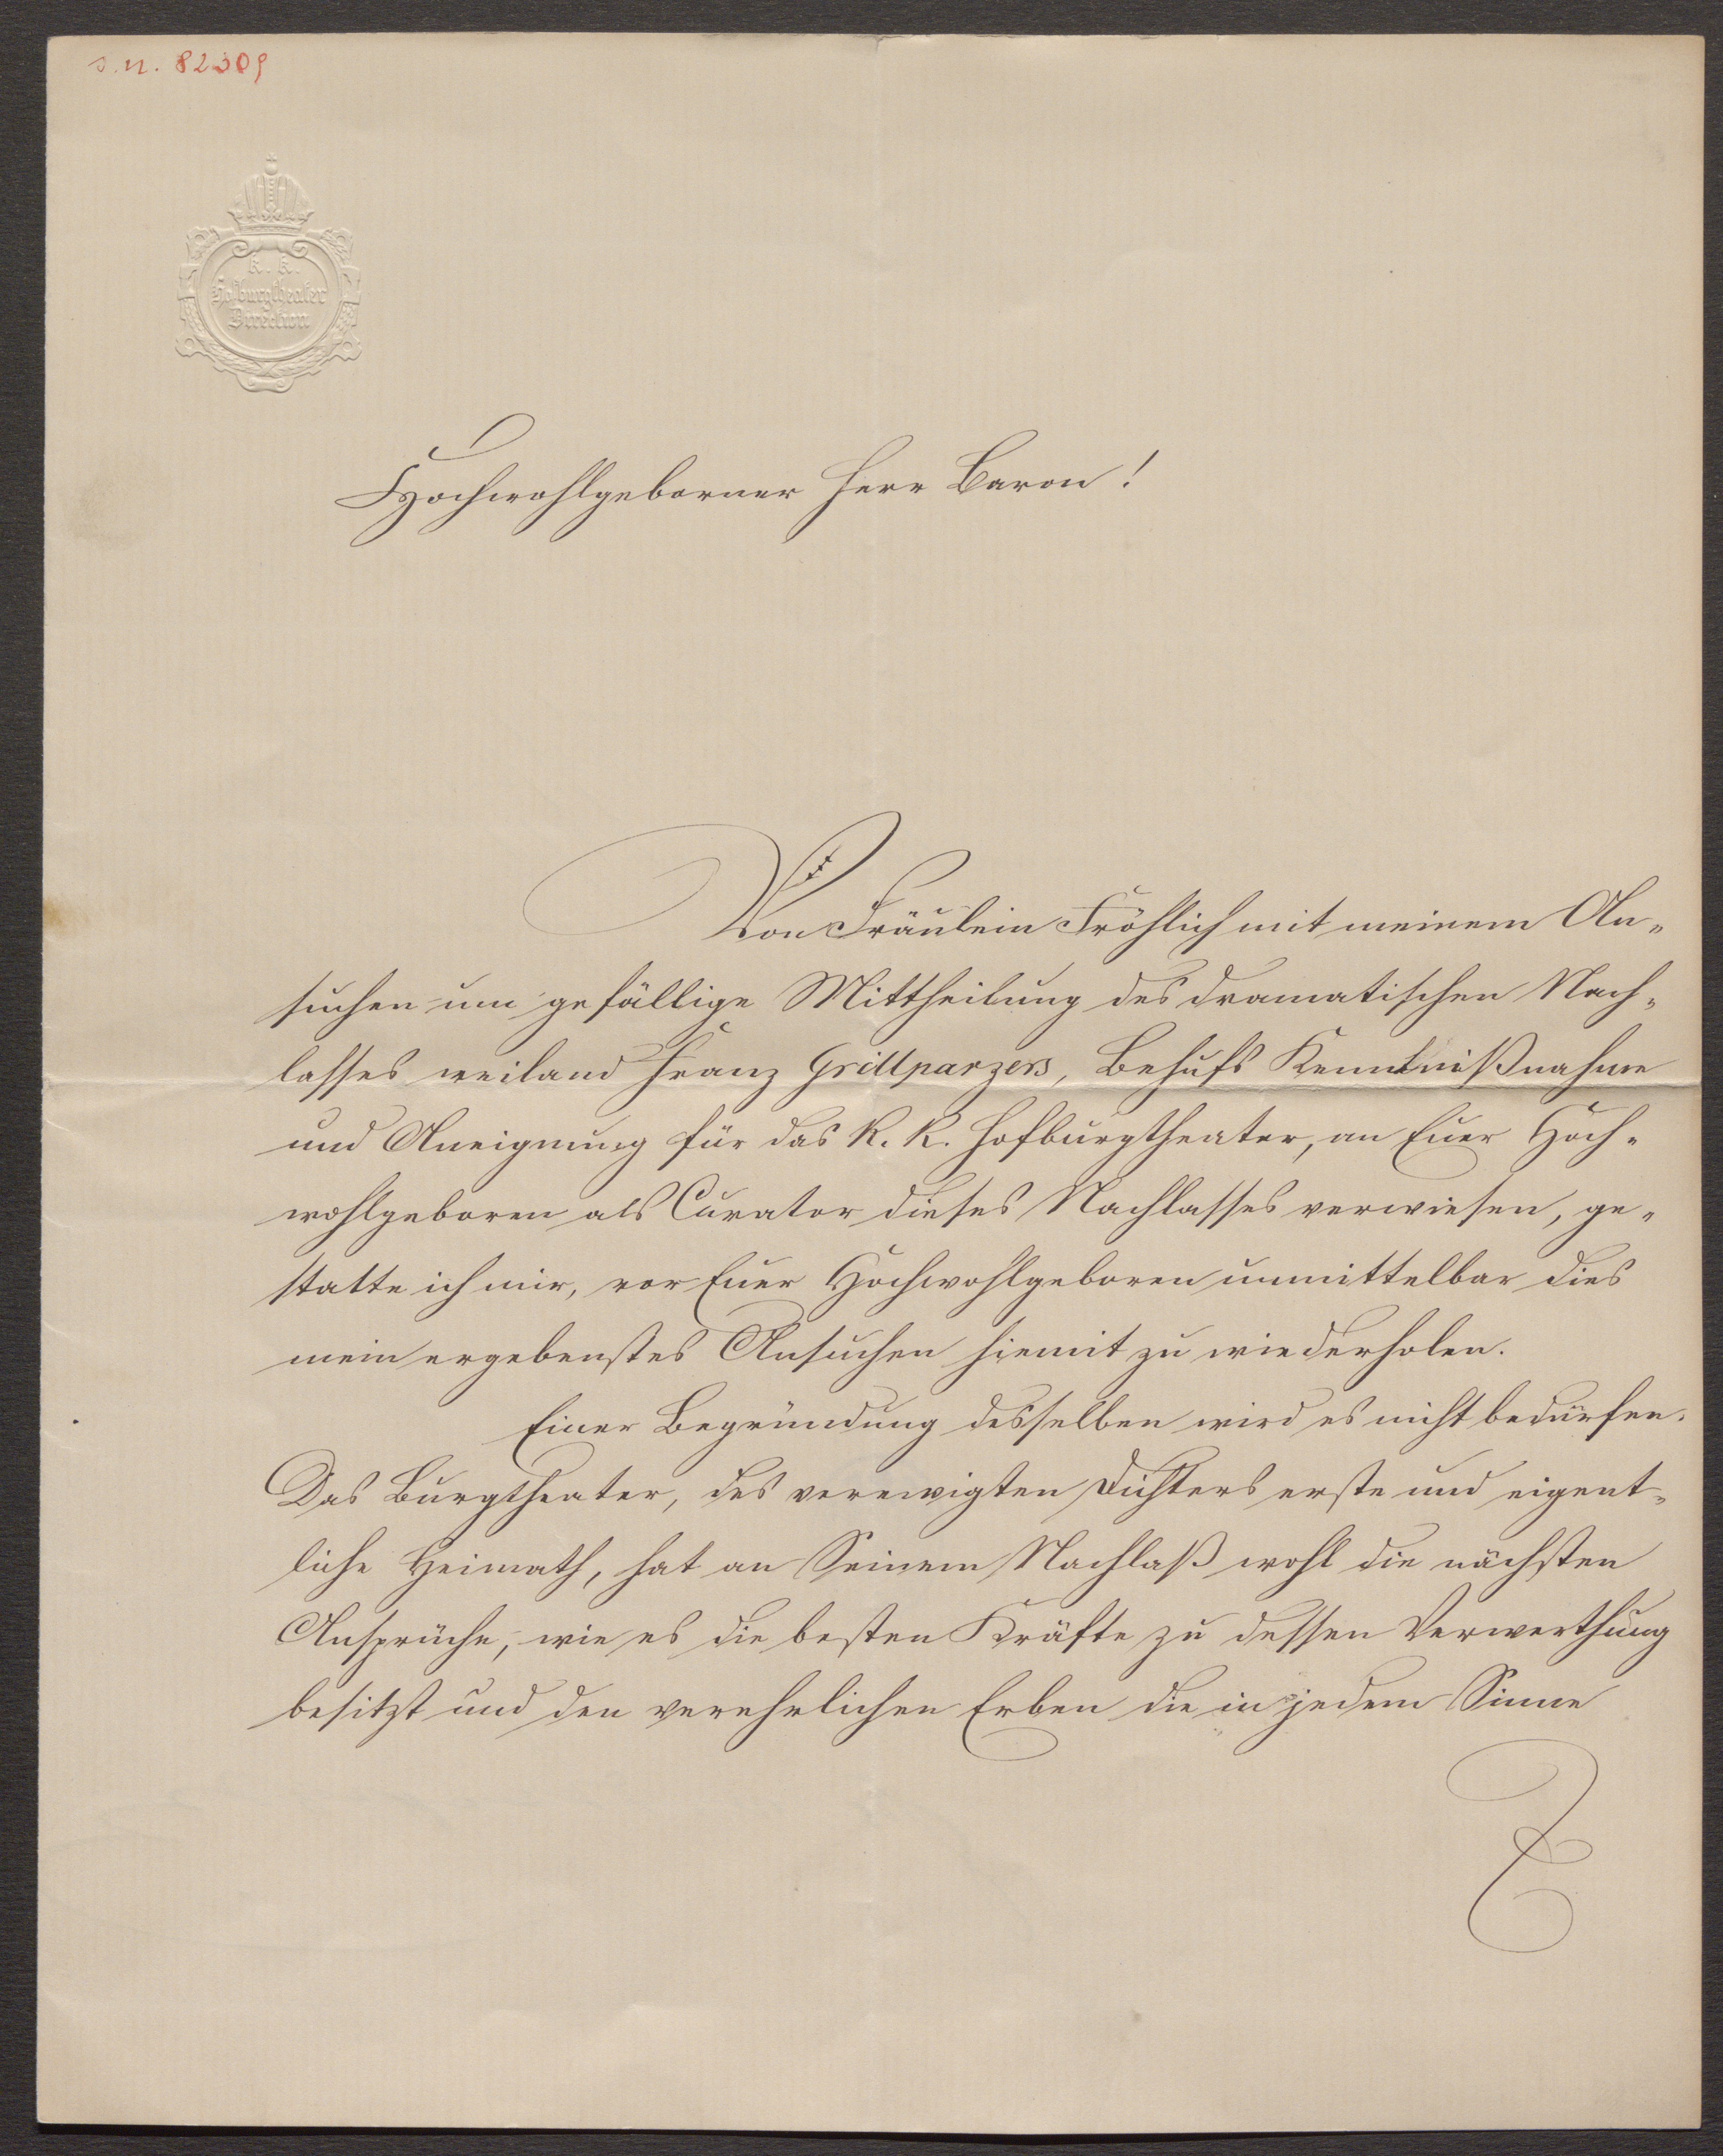 I.N. 82309
K. K.
Hofburgtheater
Direction
Hochwohlgeborner Herr Baron!
Von Fräulein Fröhlich mit meinem An-
suchen um gefällige Mittheilung des dramatischen Nach-
lasses weiland Franz Grillparzers, Behufs Kenntnißnahme
und Aneignung für das K. K. Hofburgtheater, an Euer Hoch-
wohlgeboren als Curator dieses Nachlasses verwiesen, ge-
statte ich mir, vor Euer Hochwohlgeboren unmittelbar dies
mein ergebenstes Ansuchen hiemit zu wiederholen.
Einer Begründung desselben wird es nicht bedürfen.
Das Burgtheater, des verewigten Dichters erste und eigent-
liche Heimath, hat an Seinem Nachlaß wohl die nächsten
Ansprüche, wie es die besten Kräfte zu dessen Verwerthung
besitzt und den verehrlichen Erben die in jedem Sinne